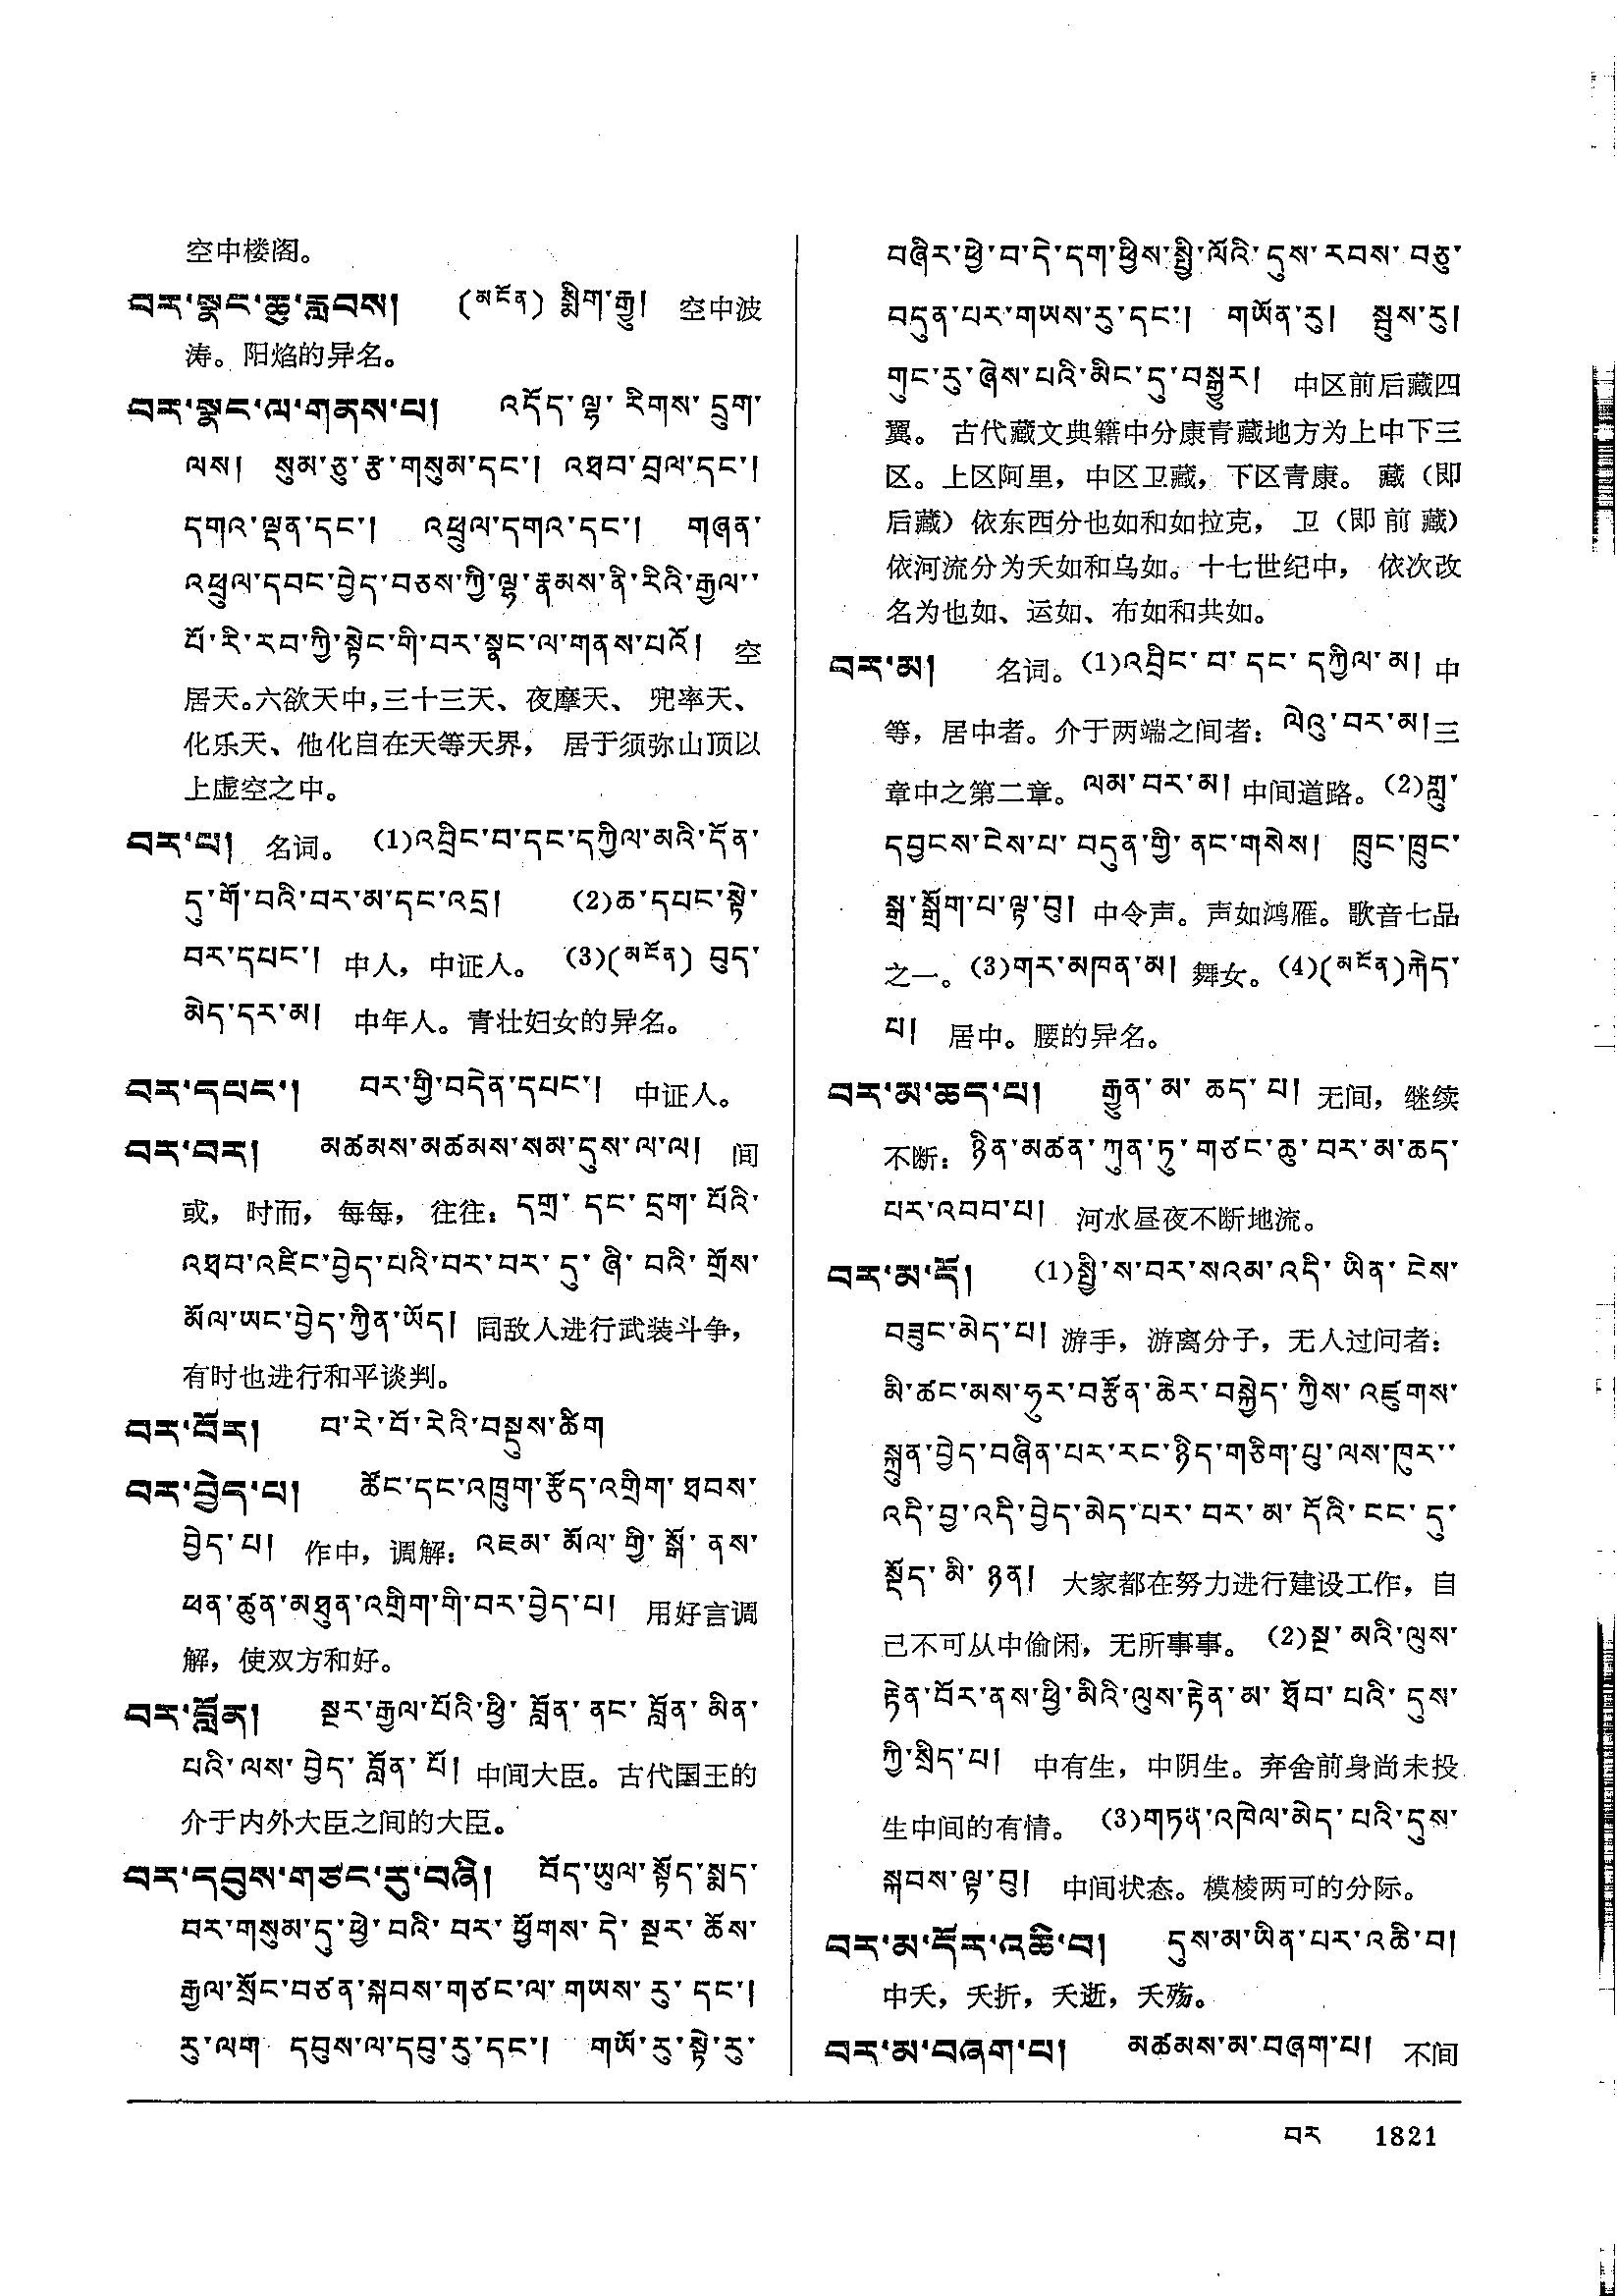 空中楼阁。
བར་སྣང་ཆུ་རླབས། (མངོན) སྨིག་རྒྱུ། 空中波
涛。阳焰的异名。
བར་སྣང་ལ་གནས་པ། འདོད་ལྷ་རིགས་དྲུག་
ལས། སུམ་ཅུ་རྩ་གསུམ་དང་། འཐབ་བྲལ་དང་།
དགའ་ལྡན་དང་། འཕྲུལ་དགའ་དང་། གཞན་
འཕྲུལ་དབང་བྱེད་བཅས་ཀྱི་ལྷ་རྣམས་ནི་རིའི་རྒྱལ་
པོ་རི་རབ་ཀྱི་སྟེང་གི་བར་སྣང་ལ་གནས་པའོ། 空
居天。六欲天中,三十三天、夜摩天、兜率天、
化乐天、他化自在天等天界，居于须弥山顶以
上虚空之中。
བར་པ། 名词。 (1)འབྲིང་བ་དང་དཀྱིལ་མའི་དོན་
དུ་གོ་བའི་བར་མ་དང་འདྲ། (2)ཆ་དཔང་སྟེ་
བར་དཔང་། 中人，中证人。 (3)(མངོན) བུད་
མེད་དར་མ། 中年人。青壮妇女的异名。
བར་དཔང་། བར་གྱི་བདེན་དཔང་། 中证人。
བར་བར། མཚམས་མཚམས་སམ་དུས་ལ་ལ། 间
或，时而，每每，往往：དགྲ་དང་དྲག་པོའི་
འཐབ་འཛིང་བྱེད་པའི་བར་བར་དུ་ཞི་བའི་གྲོས་
མོལ་ཡང་བྱེད་ཀྱིན་ཡོད། 同敌人进行武装斗争，
有时也进行和平谈判。
བར་བོར། བ་རེ་བོ་རེའི་བསྡུས་ཚིག
བར་བྱེད་པ། ཚོང་དང་འཁྲུག་རྩོད་འགྲིག་ཐབས་
བྱེད་པ། 作中，调解：འཇམ་མོལ་གྱི་སྒོ་ནས་
ཕན་ཚུན་མཐུན་འགྲིག་གི་བར་བྱེད་པ། 用好言调
解，使双方和好。
བར་བློན། སྔར་རྒྱལ་པོའི་ཕྱི་བློན་ནང་བློན་མིན་
པའི་ལས་བྱེད་བློན་པོ། 中间大臣。古代国王的
介于内外大臣之间的大臣。
བར་དབུས་གཙང་རུ་བཞི། བོད་ཡུལ་སྟོད་སྨད་
བར་གསུམ་དུ་ཕྱེ་བའི་བར་ཕྱོགས་དེ་སྔར་ཆོས་
རྒྱལ་སྲོང་བཙན་སྐབས་གཙང་ལ་གཡས་རུ་དང་།
རུ་ལག དབུས་ལ་དབུ་རུ་དང་། གཡོ་རུ་སྟེ་རུ་
བཞིར་ཕྱེ་བ་དེ་དག་ཕྱིས་སྤྱི་ལོའི་དུས་རབས་བཅུ་
བདུན་པར་གཡས་རུ་དང་། གཡོན་རུ། སྦུས་རུ།
གུང་རུ་ཞེས་པའི་མིང་དུ་བསྒྱུར། 中区前后藏四
翼。古代藏文典籍中分康青藏地方为上中下三
区。上区阿里，中区卫藏，下区青康。藏（即
后藏）依东西分也如和如拉克，卫（即前藏）
依河流分为夭如和乌如。十七世纪中，依次改
名为也如、运如、布如和共如。
བར་མ། 名词。(1)འབྲིང་བ་དང་དཀྱིལ་མ། 中
等，居中者。介于两端之间者：ལེའུ་བར་མ། 三
章中之第二章。ལམ་བར་མ། 中间道路。(2)གླུ་
དབྱངས་ངེས་པ་བདུན་གྱི་ནང་གསེས། ཁྲུང་ཁྲུང་
སྒྲ་སྒྲོག་པ་ལྟ་བུ། 中令声。声如鸿雁。歌音七品
之一。(3)གར་མཁན་མ། 舞女。(4)(མངོན)རྐེད་
པ། 居中。腰的异名。
བར་མ་ཆད་པ། རྒྱུན་མ་ཆད་པ། 无间，继续
不断：ཉིན་མཚན་ཀུན་ཏུ་གཙང་ཆུ་བར་མ་ཆད་
པར་འབབ་པ། 河水昼夜不断地流。
བར་མ་དོ། (1)སྤྱི་ས་བར་སའམ་འདི་ཡིན་ངེས་
བཟུང་མེད་པ། 游手，游离分子，无人过问者：
མི་ཚང་མས་ཧུར་བརྩོན་ཆེར་བསྐྱེད་ཀྱིས་འཛུགས་
སྐྲུན་བྱེད་བཞིན་པར་རང་ཉིད་གཅིག་པུ་ལས་ཁུར་
འདི་བྱ་འདི་བྱེད་མེད་པར་བར་མ་དོའི་ངང་དུ་
སྡོད་མི་ཉན། 大家都在努力进行建设工作，自
己不可从中偷闲，无所事事。(2)སྔ་མའི་ལུས་
རྟེན་བོར་ནས་ཕྱི་མའི་ལུས་རྟེན་མ་ཐོབ་པའི་དུས་
ཀྱི་སྲིད་པ། 中有生，中阴生。弃舍前身尚未投
生中间的有情。 (3)གཏན་འཁེལ་མེད་པའི་དུས་
སྐབས་ལྟ་བུ། 中间状态。模棱两可的分际。
བར་མ་དོར་འཆི་བ། དུས་མ་ཡིན་པར་འཆི་བ།
中夭，夭折，夭逝，夭殇。
བར་མ་བཞག་པ། མཚམས་མ་བཞག་པ། 不间
བར 1821